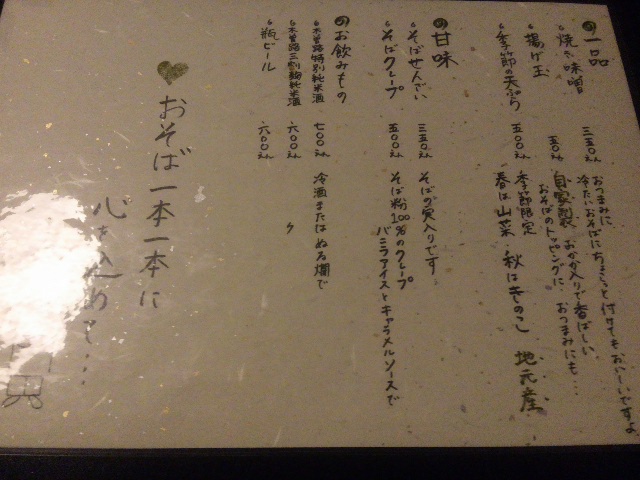 一品
焼き味噌 三五〇えん おつまみに 冷たいおそばにちょきっと付けてもおいしいですよ
揚げ玉 五〇えん 自家製 おかか入りで香ばしい おそばのトッピングに、おつまみにも…
季節の天ぷら 五〇〇えん 季節限定 春は山菜・秋はきのこ 地元産
甘味
そばぜんざい 三五〇えん そばの実入りです。
そばクレープ 五〇〇えん そば粉100%のクレープ
バニラアイスとキャラメルソースで
お飲みもの
木曽路特別純米酒 七〇〇えん 冷酒またはぬる燗で
木曽路三割麹純米酒 六〇〇えん 〃
瓶ビール 六〇〇えん
おそば一本一本に
心を込めて…